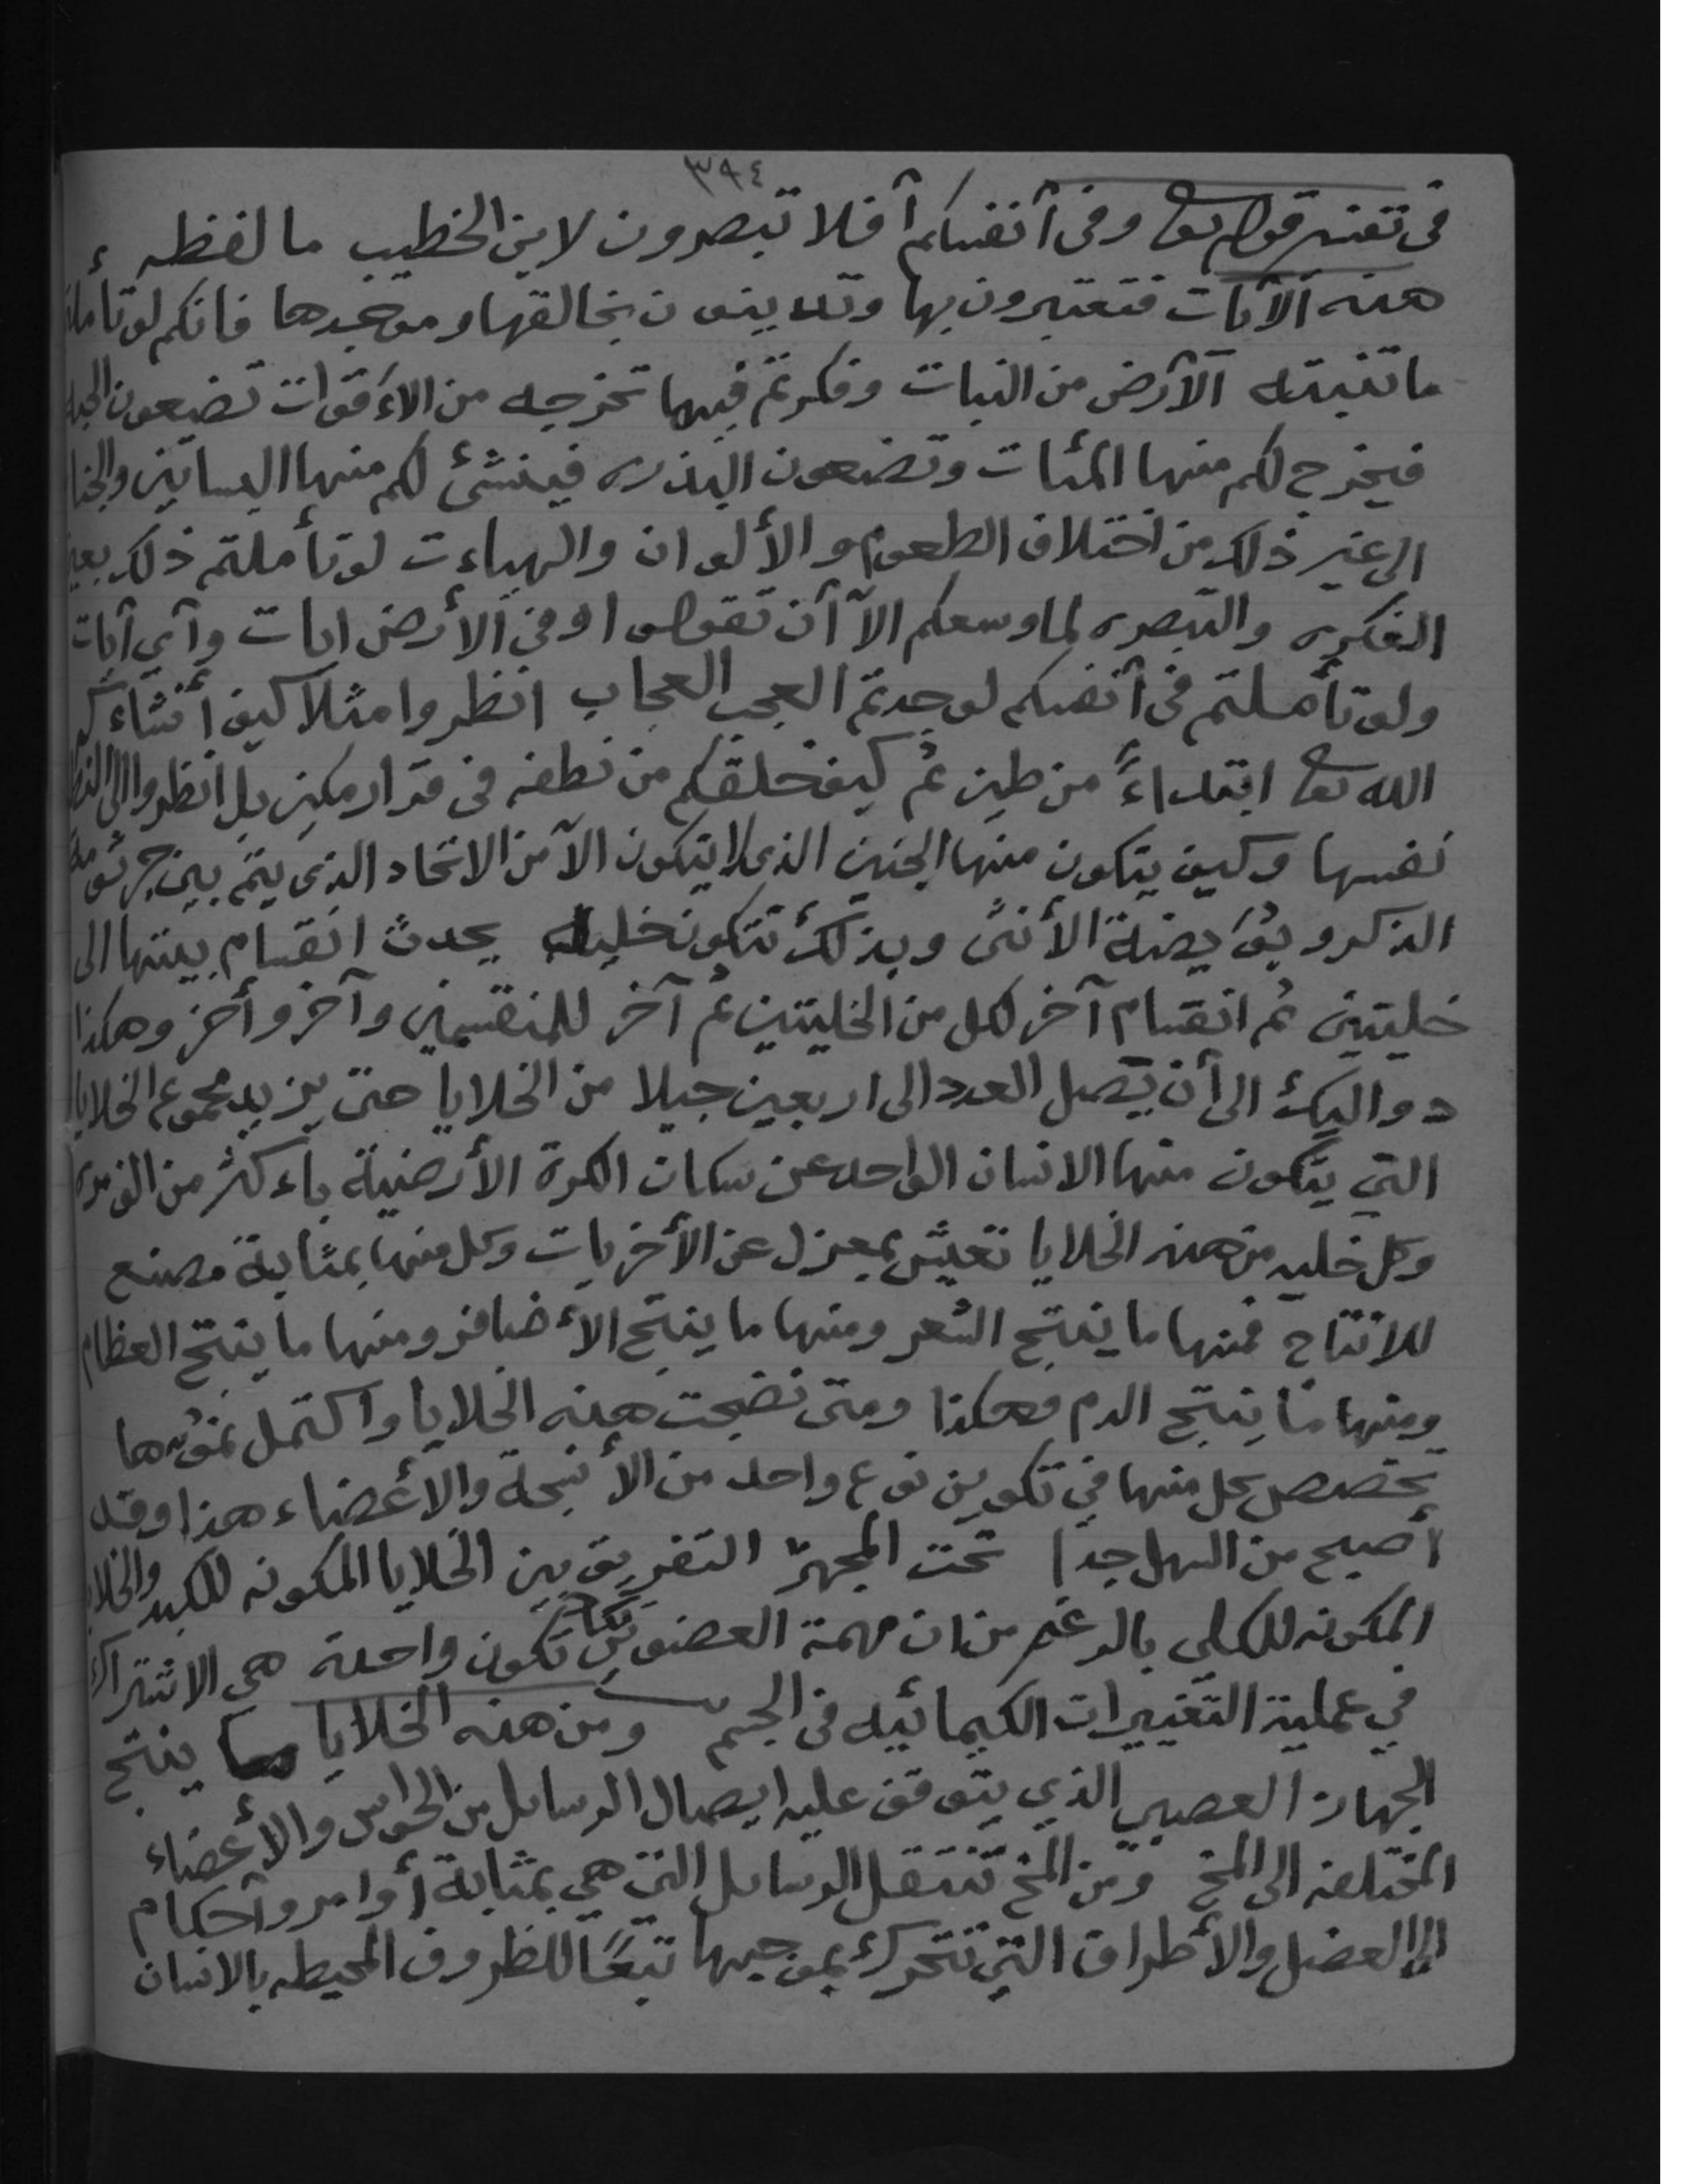 ٣٩٤
فى تفسير قوله تعا وفى أنفسكم أفلا تبصرون لابن الخطيب ما لفظه
هذه الآيات فتعتبرون بها وتدينون بخالقها وموجدها فانكم لو تأملتم
ما تنبته الأرض من النبات وفكرتم فيما تخرجه من الأقوات تضعون الحبة
فيخرج لكم منها المئات وتضعون البذره فينشئ لكم منها البساتين والجنا
الى غير ذلك من اختلاف الطعوم والألوان والهياءت لو تأملتم ذلك بعين
الفكره والتبصره لما وسعكم الا أن تقولوا وفى الأرض ايات وآي آيات
ولو تأملتم فى أنفسكم لوجدتم العجب العجاب انظروا مثلا كيف أنشاءكم
الله تعا ابتداءً من طين ثم كيف خلقكم من نطفه فى قرار مكين بل انظروا الى النط
نفسها وكيف يتكون منها الجنين الذى لا يتكون الا من الاتحاد الذى يتم بين جرثومة
الذكر و بويضة الأنثى وبذلك تتكون خليه يحدث انقسام بينها الى
خليتين ثم انقسام آخر لكل من الخليتين ثم آخر للمنقسمين وآخر وأخر وهكذا
دواليك الى أن يصل العدد الى اربعين جيلا من الخلايا حتى يزيد مجموع الخلايا
التي يتكون منها الانسان الواحد عن سكان الكرة الأرضية باءكثر من الف مره
وكل خليه من هذه الخلايا تعيش بمعزل عن الأخريات وكل منها بمثابة مصنع
للانتاج فمنها ما ينتج الشعر ومنها ما ينتج الأضافر ومنها ما ينتج العظام
ومنها ما ينتج الدم وهكذا ومتى نضجت هذه الخلايا واكتمل نموها
تخصص كل منها في تكوين نوع واحد من الأنسجة والأعضاء هذا وقد
أصبح من السهل جداً تحت المجهر التفريق بين الخلايا المكونه للكبد والخلايا
المكونه للكلى بالرغم من ان مهمة العضوين تكاد تكون واحدة هي الاشتراك
في عملية التغييرات الكيمائيه فى الجسم ومن هذه الخلايا ما ينتج
الجهاز العصبي الذي يتوقف عليه ايصال الرسائل من الحواس والأعضاء
المختلفه الى المخ ومن المخ تنتقل الرسائل التي هي بمثابة أوامر وأحكام
الى العضل والأطراف التي تتحرك بموجبها تبعًا للظروف المحيطه بالانسان